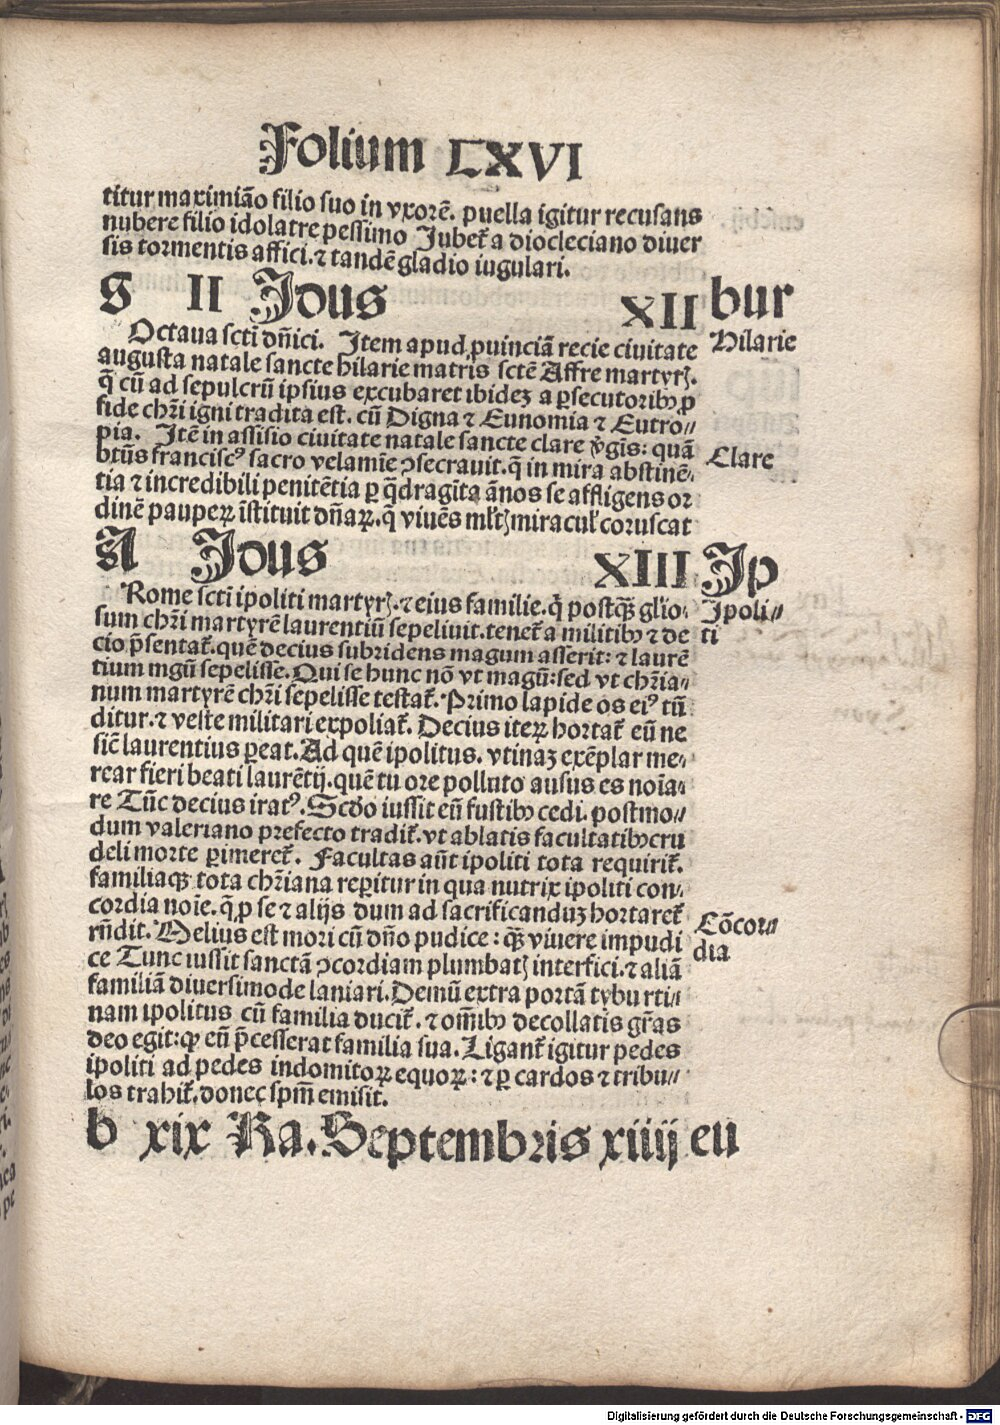 Folium LXVI
titur maximiāo filio suo in vxorē. puella igitur recusans
nubere filio idolatre pessimo Jubet᷑ a diocleciano diuer
sis tormentis affici. ⁊ tandē gladio iugulari.
S II Jdus XII bur
Octaua sctī dn̄ici. Item apud ꝓuinciā recie ciuitate
Hilarie
augusta natale sancte hilarie matris sctē Affre martyrꝭ.
q̄ cū ad sepulcrū ipsius excubaret ibideꝫ a ꝑsecutoribꝰ ꝓ
fide chr̄i igni tradita est. cū Digna ⁊ Eunomia ⁊ Eutro⸗
pia. Itē in assisio ciuitate natale sancte clare v̄gīs: quā
Clare
btūs franciscꝰ sacro velamīe ꝯsecrauit. q̄ in mira abstinē⸗
tia ⁊ incredibili penitētia ꝑ q̄dragīta ānos se affligens or
dinē pauperꝝ īstituit dn̄aꝝ. q̄ viuēs ml̄tꝭ miracul᷑ coruscat
A Jdus XIII Jp
Rome sctī ipoliti martyrꝭ. ⁊ eius familie. q̄ postqꝫ gl̄io⸗
Ipoli⸗
sum chr̄i martyrē laurentiū sepeliuit. tenet᷑ a militibꝰ ⁊ de
ti
cio p̄sentat᷑. quē decius subridens magum asserit: ⁊ laurē
tium mgū sepelisse. Qui se hunc nō vt magū: sed vt chr̄ia⸗
num martyrē chr̄i sepelisse testat᷑. Primo lapide os eiꝰ tū
ditur. ⁊ veste militari expoliat᷑. Decius iteꝝ hortat᷑ eū ne
sic̄ laurentius ꝑeat. Ad quē ipolitus. vtinaꝫ exēplar me⸗
rear fieri beati laurētij. quē tu ore polluto ausus es noīa⸗
re Tūc decius iratꝰ. Scd̄o iussit eū fustibꝰ cedi. postmo⸗
dum valeriano prefecto tradit᷑. vt ablatis facultatibꝰ cru
deli morte ꝑimeret᷑. Facultas aūt ipoliti tota requirit᷑.
familiaqꝫ tota chr̄iana reꝑitur in qua nutrix ipoliti con⸗
cordia noīe. q̄ ꝓ se ⁊ alijs dum ad sacrificanduꝫ hortaret᷑
Cōcor⸗
rn̄dit. Melius est mori cū dn̄o pudice: qꝫ viuere impudi
dia
ce Tunc iussit sanctā ꝯcordiam plumbatꝭ interfici. ⁊ aliā
familiā diuersimode laniari. Demū extra portā tyburti⸗
nam ipolitus cū familia ducit᷑. ⁊ oīnibꝰ decollatis gr̄as
deo egit: qꝙ eū p̄cesserat familia sua. Ligant᷑ igitur pedes
ipoliti ad pedes indomitoꝝ equoꝝ: ⁊ ꝑ cardos ⁊ tribu⸗
los trahit᷑. donec spm̄ emisit.
b xix Ka. Septembris xiiij eu
Digitalisierung gefördert durch die Deutsche Forschungsgemeinschaft - DFG